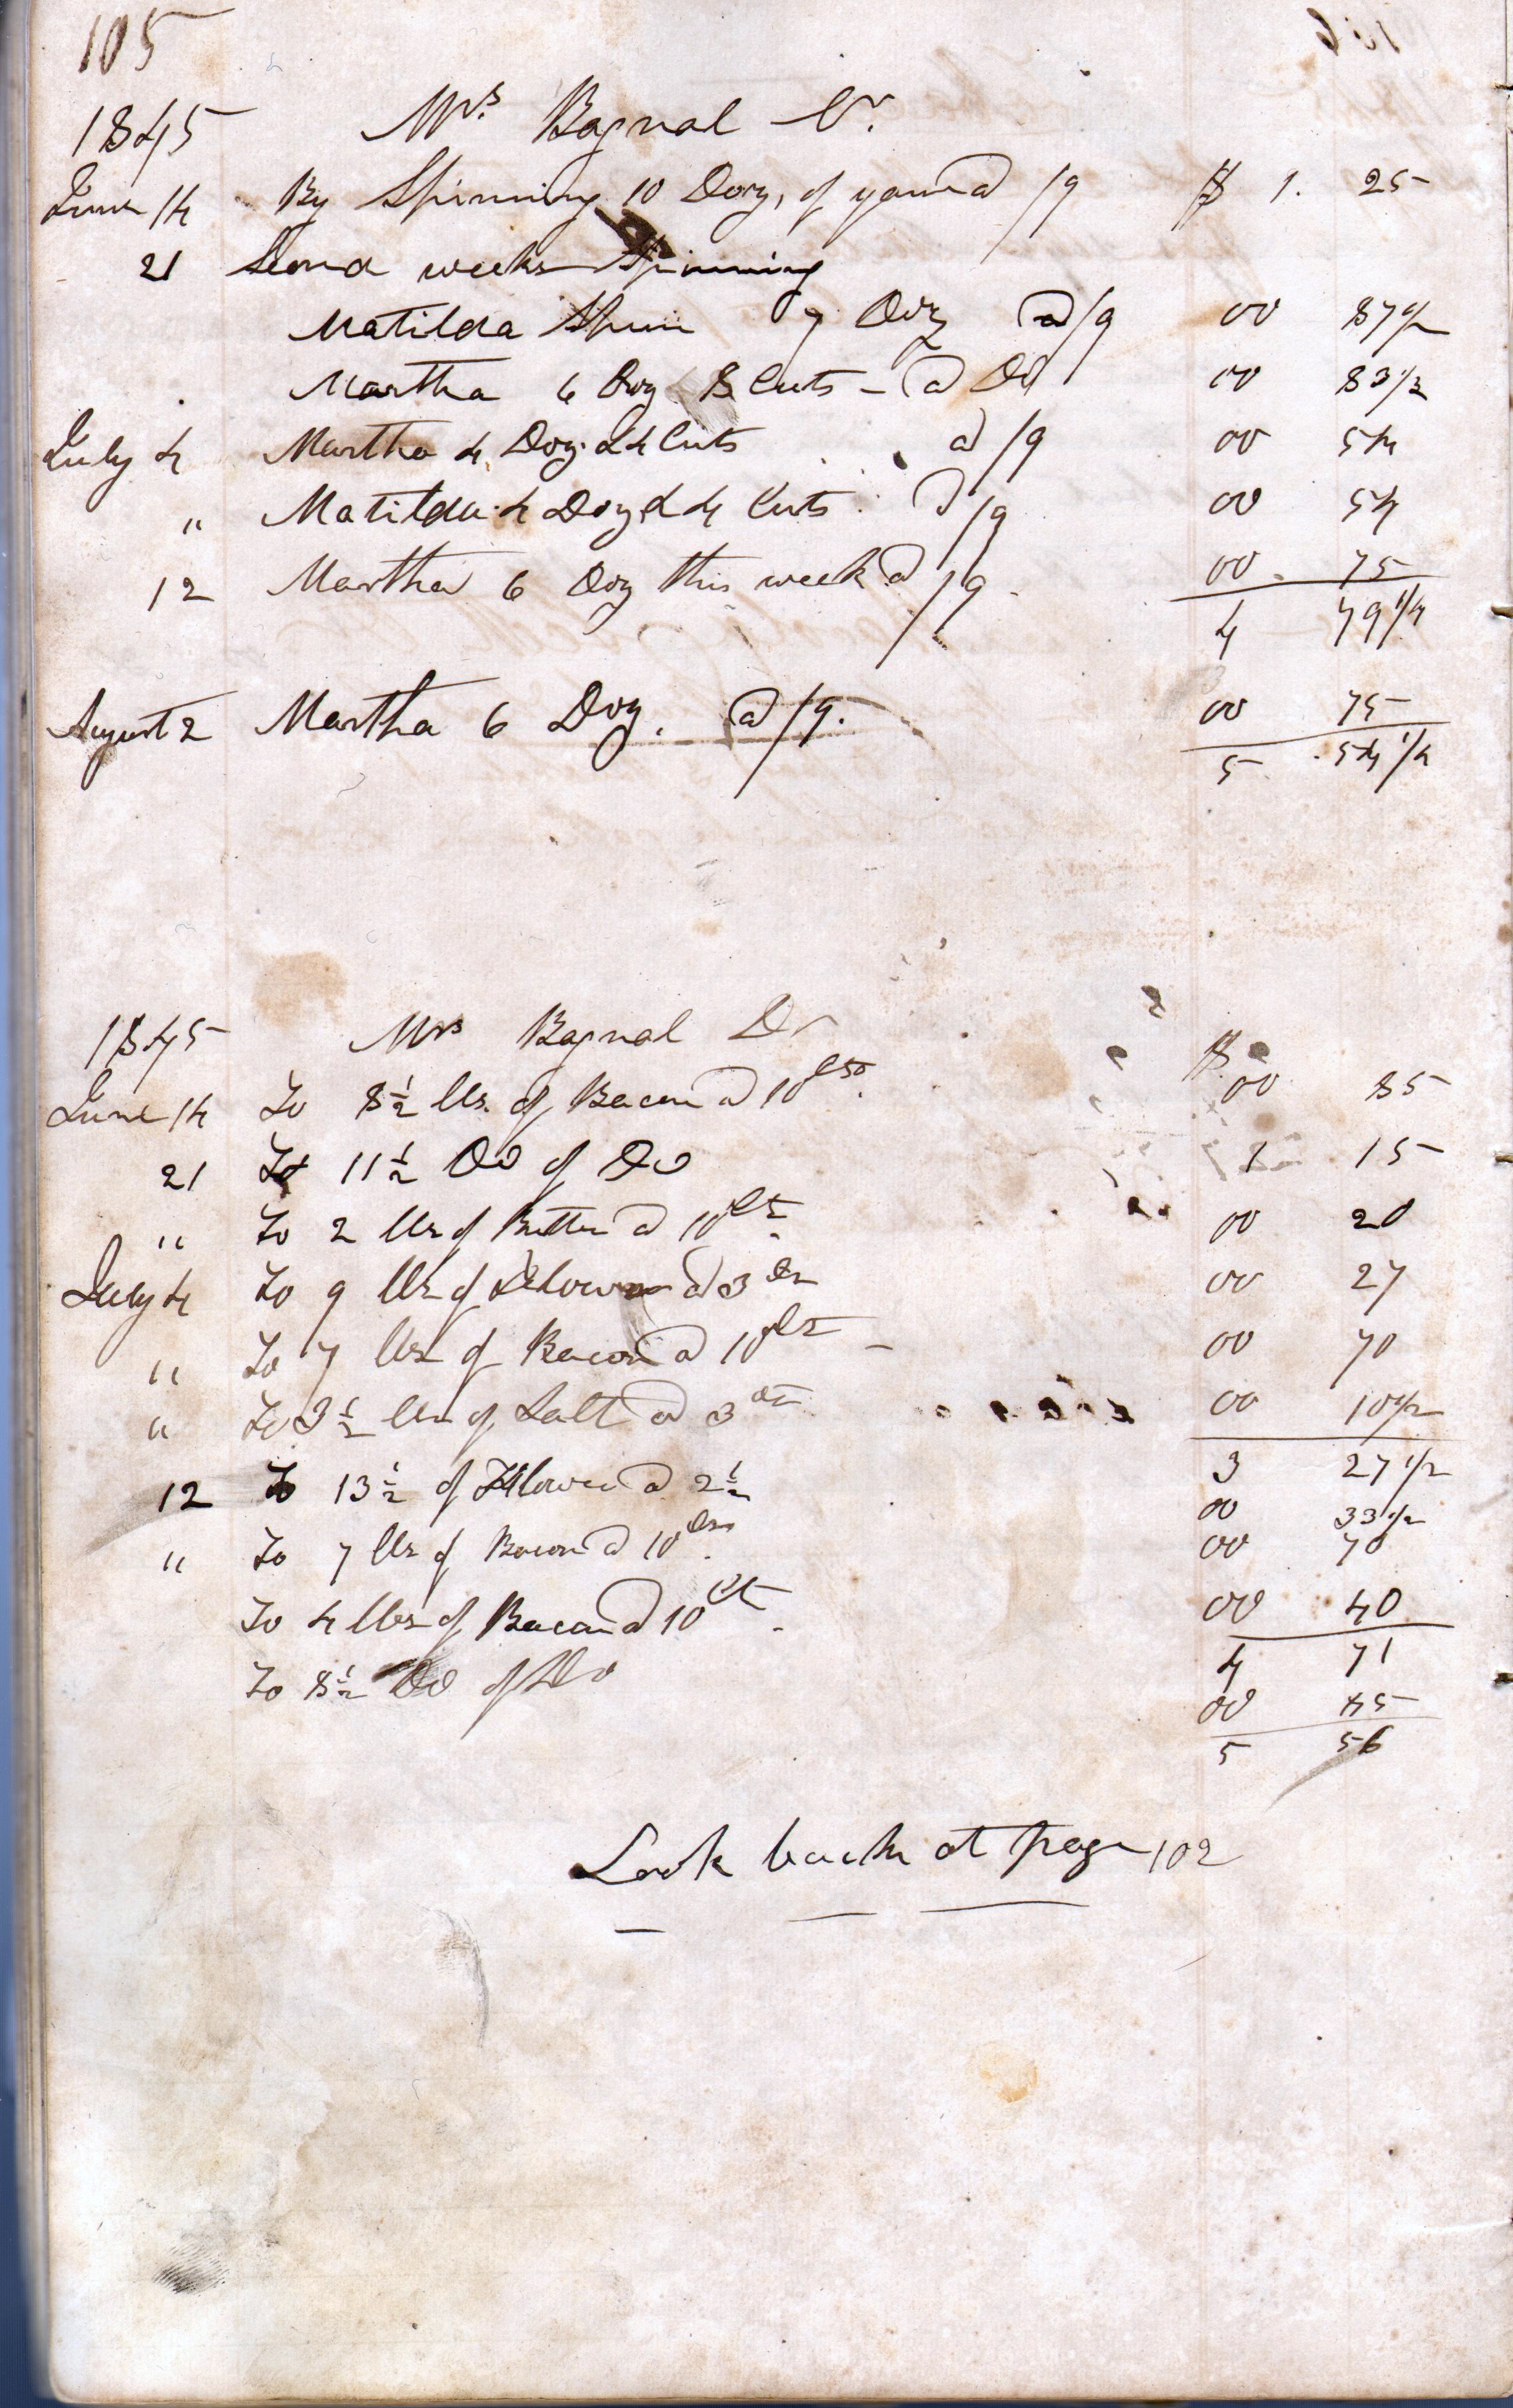 105
1845 Mrs. Bagnal Cr.
June 14 By Spinning 10 Doz, of yarn @ /9 $ 1. 25
21 Second weeks Spinning
Matilda Spun 7 Doz @ /9 00 87 1/2
Martha 6 Doz & 8 Cuts - @ Do 00 83 1/3
July 4 Martha 4 Doz. & 4 Cuts @ /9 00 54
" Matilda 4 Doz & 4 Cuts @ /9 00 54
12 Martha 6 Doz this week @ /9 00. 75
4 79 1/4
August 2 Martha 6 Doz. @ /9. 00 75
5 54 1/4
1845 Mrs Bagnal Dr
$
June 14 To 8 1/2 lbs. of Bacon @ 10 cts. 00 85
21 To 11 1/2 Do of Do 1 15
" To 2 lbs of Butter @ 10 cts. 00 20
July 4 To 9 lbs of Flower @ 3 cts 00 27
" To 7 lbs of Bacon @ 10 cts - 00 70
" To 3 1/2 lbs of Salt @ 3 cts 00 10 1/2
3 27 1/2
12 To 13 1/2 of Flower @ 2 1/2 00 33 1/2
" To 7 lbs of Bacon @ 10 cts. 00 70
To 4 lbs of Bacon @ 10 cts. 00 40
4 71
To 8 1/2 Do of Do 00 85
5 56
Look back at page 102